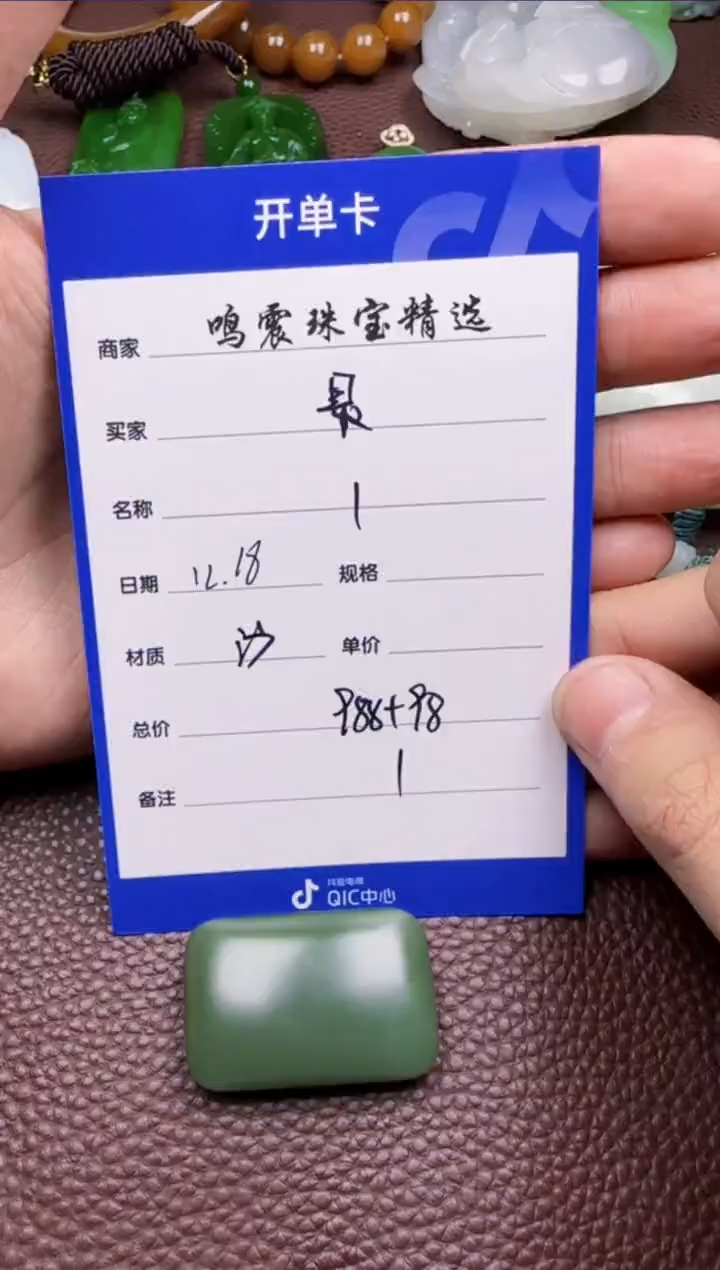 开单卡
商家 鸣震珠宝精选
买家 最
名称 1
日期 12.18 规格
材质 沙 单价
总价 988+98
备注 1
抖音电商
QIC中心